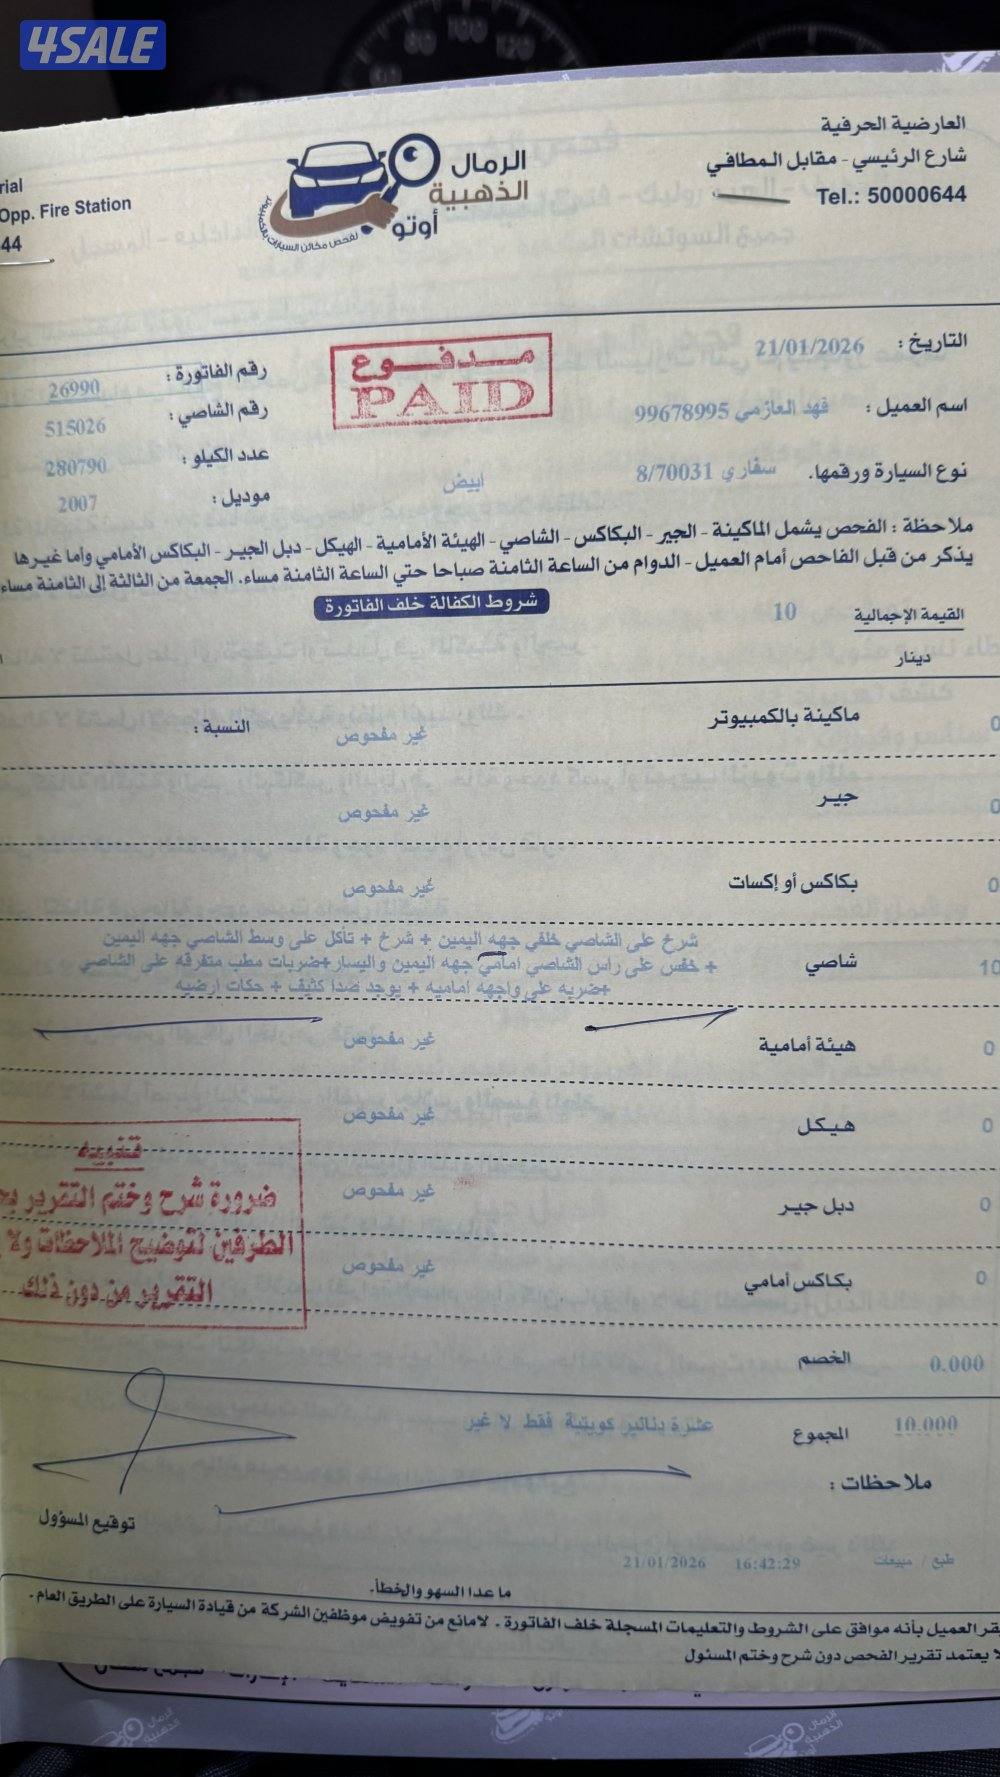 4SALE
العارضية الحرفية
شارع الرئيسي - مقابل المطافي
Tel.: 50000644
الرمال
الذهبية
أوتو
لفحص مكائن السيارات بالكمبيوتر
rial
Opp. Fire Station
44
التاريخ : 21/01/2026
اسم العميل : فهد العازمي 99678995
نوع السيارة ورقمها. سفاري 8/70031 ابيض
مدفوع
PAID
رقم الفاتورة : 26990
رقم الشاصي : 515026
عدد الكيلو : 280790
موديل : 2007
ملاحظة : الفحص يشمل الماكينة - الجير - البكاكس - الشاصي - الهيئة الأمامية - الهيكل - دبل الجير - البكاكس الأمامي وأما غيرها
يذكر من قبل الفاحص أمام العميل - الدوام من الساعة الثامنة صباحا حتي الساعة الثامنة مساء. الجمعة من الثالثة إلى الثامنة مساء
شروط الكفالة خلف الفاتورة
القيمة الإجمالية 10
دينار
ماكينة بالكمبيوتر غير مفحوص النسبة : 0
جير غير مفحوص 0
بكاكس أو إكسات غير مفحوص 0
شرخ على الشاصي خلفي جهه اليمين + شرخ + تأكل على وسط الشاصي جهه اليمين
شاصي + خفس على راس الشاصي امامي جهه اليمين واليسار+ضربات مطب متفرقه على الشاصي 10
+ضربه على واجهه اماميه + يوجد صدا كثيف + حكات ارضيه
هيئة أمامية غير مفحوص 0
هيكل غير مفحوص 0
دبل جير غير مفحوص 0
بكاكس أمامي غير مفحوص 0
تنبيه
ضرورة شرح وختم التقرير
الطرفين لتوضيح الملاحظات ولا
التقرير من دون ذلك
الخصم 0.000
المجموع 10.000 عشرة دنانير كويتية فقط لا غير
ملاحظات :
توقيع المسؤول
طبع / مبيعات 16:42:29 21/01/2026
ما عدا السهو والخطأ.
يقر العميل بأنه موافق على الشروط والتعليمات المسجلة خلف الفاتورة . لامانع من تفويض موظفين الشركة من قيادة السيارة على الطريق العام .
لا يعتمد تقرير الفحص دون شرح وختم المسئول